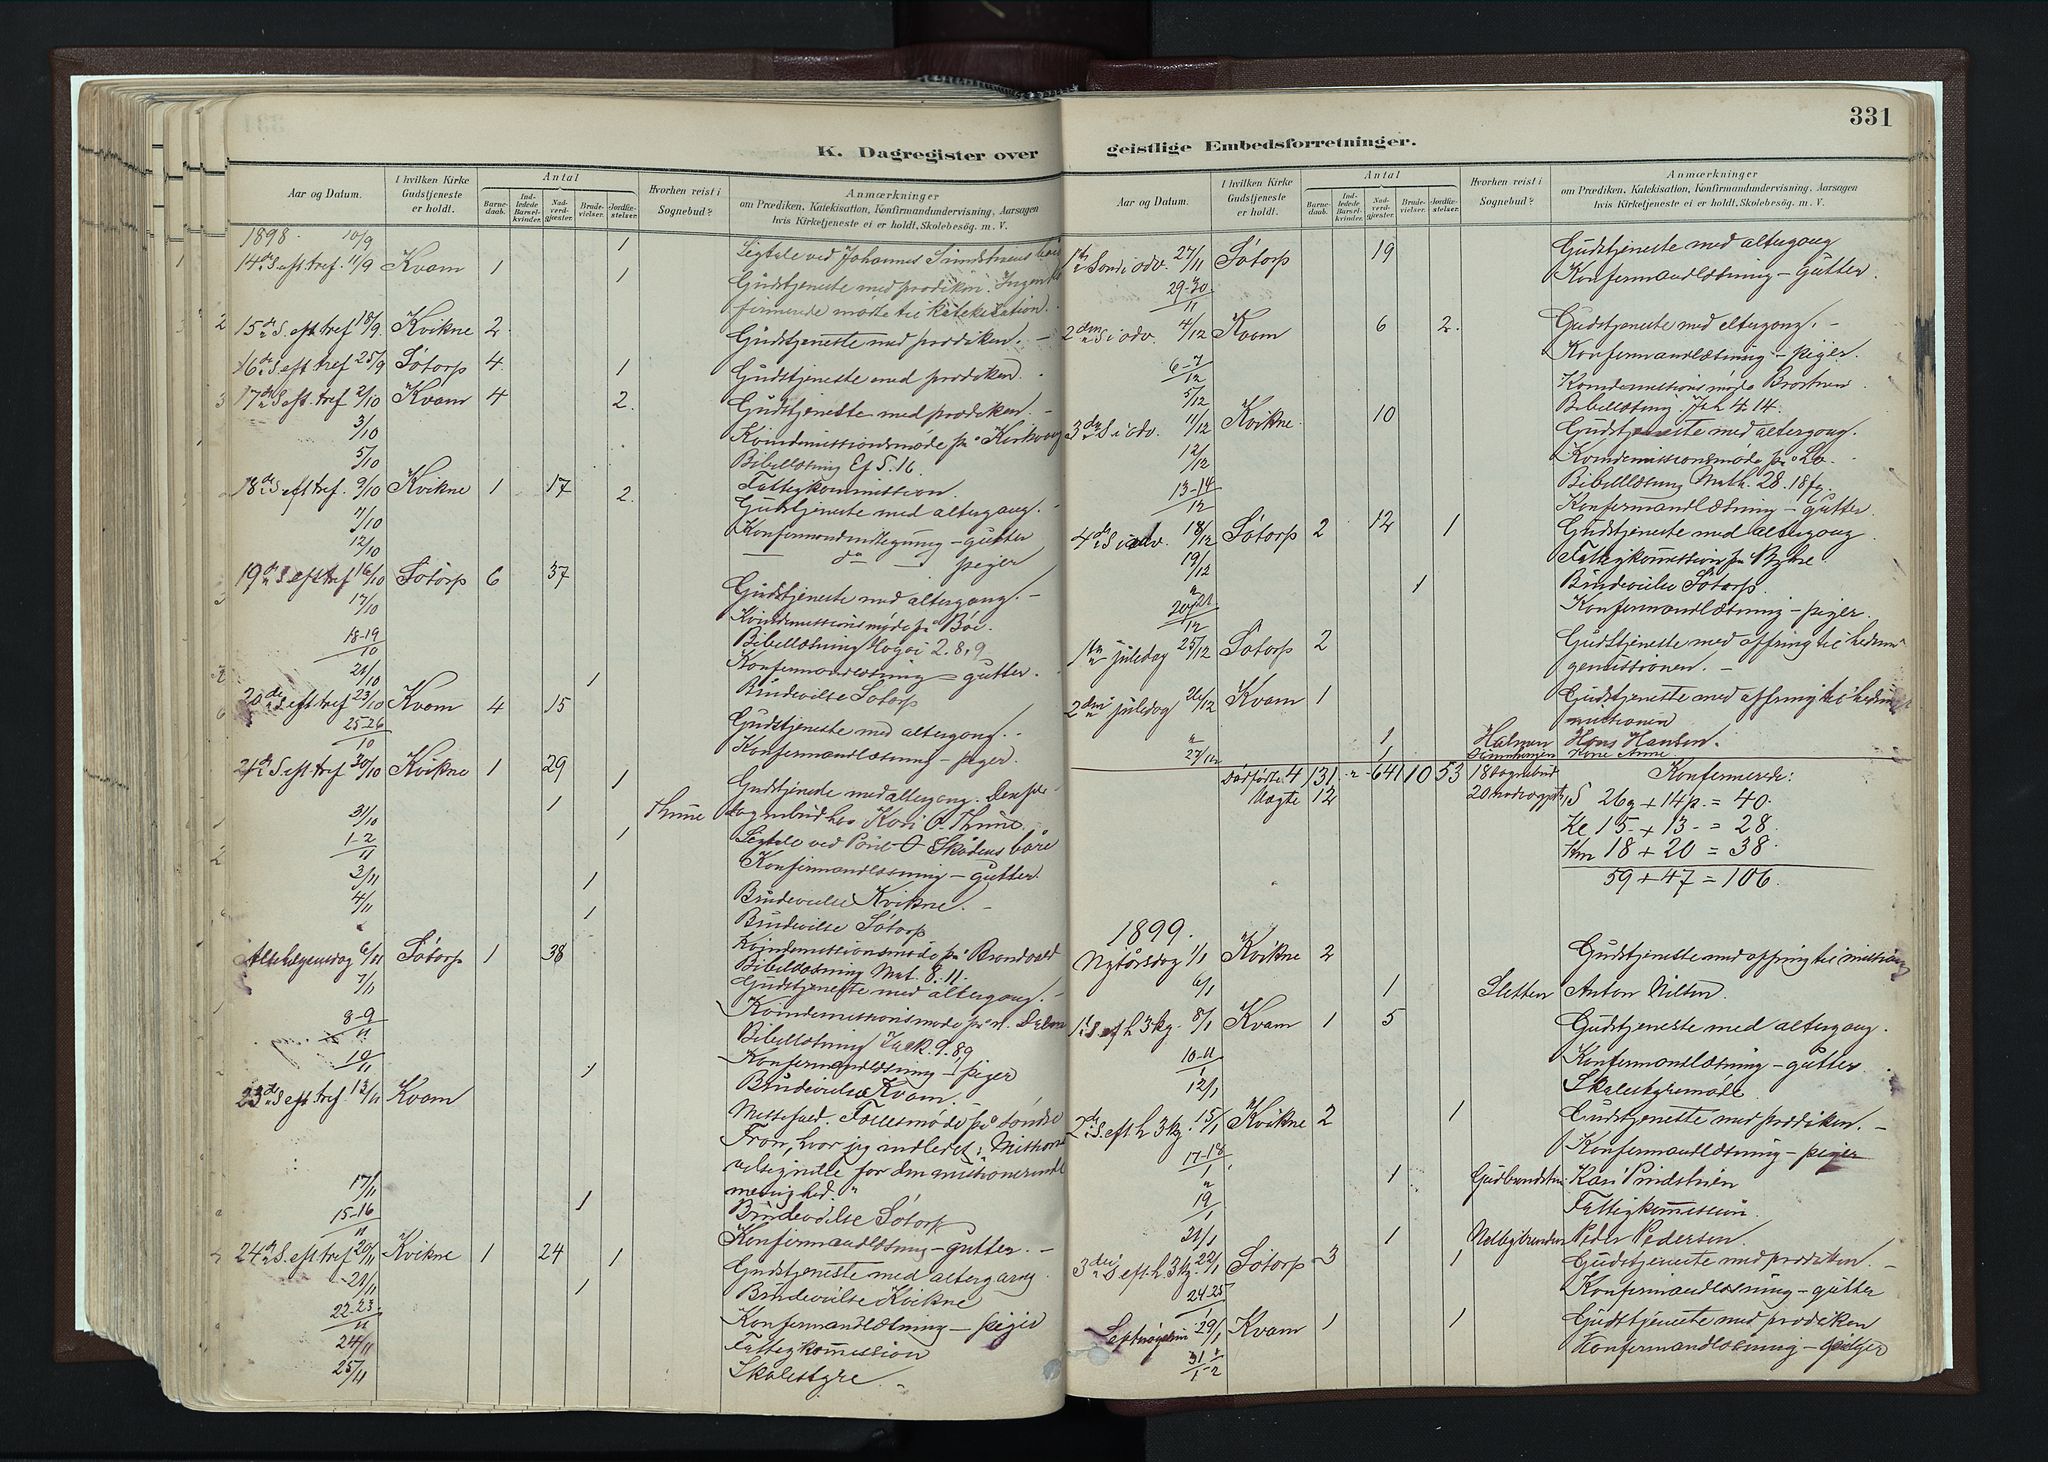 331
K. Dagregister over
geistlige Embedsforretninger.
Aar og Datum.
I hvilken Kirke Gudstjeneste er holdt.
Antal
Barnedaab.
Indledede Barselkvinder.
Nadverdgjæster.
Brudevielser.
Jordfæstelser.
Hvorhen reist i Sognebud?
Anmærkninger
om Prædiken, Katekisation, Konfirmandundervisning, Aarsagen
hvis Kirketjeneste ei er holdt, Skolebesøg. m. V.
1898. 10/9 1 Ligtale ved Johannes
14de S. eft. tref. 11/9 Kvam 1 1 Gudstjeneste med prædiken. Ingen
møtte til katekisation.
15de S. eft. tref 18/9 Kvikne 2 Gudstjeneste med prædiken. –
16de S. eft tref 25/9 Sötorp 4 1 Gudstjeneste med prædiken.
17de S. eft. tref 2/10 Kvam 4 2 Gudstjeneste med prædiken. –
3/10 Kvindemissionsmøde på Kirkvang
Bibellæsning Ef 5.16.
5/10 Fattigkommission.
18de S. eft tref. 9/10 Kvikne 1 17 2 Gudstjeneste med altergang. –
11/10 Konfermandindtegning – gutter
12/10 do – piger
19de S. eft tref 16/10 Sötorp 6 37 Gudstjeneste med altergang. –
17/10 Kvindemissionsmøde på Bøe.
Bibellæsning Hagai 2.8,9
18-19/10 Konfermandlæsning – gutter.
21/10 1 Brudevilse Sötorp
20de S. eft tref 23/10 Kvam 4 15 Gudstjeneste med altergang.
25-26/10 Konfermandlæsning – piger.
21de S. eft tref 30/10 Kvikne 1 29 1 Gudstjeneste med altergang.
1 Thune Kari O. Thune
31/10 1 Ligtale ved O. båre
1-2/11 Konfirmandlæsning – gutter.
3/11 1 Brudevielse Kvikne. –
4/11 1 Brudevilse Sötorp
Kvindemissionsmøde på
Bibellæsning Mat. 8.11.
Allehelgensdag 6/11 Sötorp 1 38 Gudstjeneste med altergang. –
7/11 Kvindemissionsmøde på
Bibellæsning Luk. 9.
8-9/11 Konfermandlæsning – piger
10/11 1 Brudevielse Kvam.
23de S. eft tref. 13/11 Kvam Messefald. Fællesmøde på søndre
Fron, hvor jeg indledet: Missionens
velsignelse for den missionerende
menighed."
17/11 1 Brudevilse Sötorp
15-16/11 Konfermandlæsning – gutter. –
24de S. eft tref 20/11 Kvikne 1 24 1 Gudstjeneste med altergang.
21/11 1 Brudevilse Kvikne
22-23/11 Konfermandlæsning – piger
24/11 Fattigkommission
25/11 Skolestyre. –
Aar og Datum.
I hvilken Kirke Gudstjeneste er holdt.
Antal
Barnedaab.
Indledede Barselkvinder.
Nadverdgjæster.
Brudevielser.
Jordfæstelser.
Hvorhen reist i Sognebud?
Anmærkninger
om Prædiken, Katekisation, Konfirmandundervisning, Aarsagen
hvis Kirketjeneste ei er holdt, Skolebesøg. m. V.
1ste Sond i adv. 27/11 Sötorp 19 Gudstjeneste med altergang
29-30/11 Konfermandlæsning – gutter.
2den S i adv. 4/12 Kvam 6 2 Gudstjeneste med altergang. –
6-7/12 Konfermandlæsning – piger.
5/12 Kvindemissionsmøde
Bibellæsning Joh 4.14.
3die S i adv. 11/12 Kvikne 10 Gudstjeneste med altergang.
12/12 Kvindemissionsmøde på Lo
Bibellæsning Math. 28.18fg.
13-14/12 Konfermandlæsning – gutter
4de S i adv. 18/12 Sötorp 2 12 1 Gudstjeneste med altergang
19/12 Fattigkommission på
1 Brudevilse Sötorp.
20-21/12 Konfermandlæsning – piger.
1ste juledag 25/12 Sötorp 2 Gudstjeneste med offring til hednin
gemissionen. –
2den juledag 26/12 Kvam 1 Gudstjeneste med offring til
missionen
" 1 Hans Hansen.
27/12 1 Anne
4 131 641 10 53 18 sognebud
12 20
Konfermerede:
S 26g + 14p. = 40.
Ke 15 + 13 = 28.
Km 18 + 20 = 38.
59 + 47 = 106.
1899.
Nytårsdag 1/1 Kvikne 2 Gudstjeneste med offring til mission
6/1 1 Sletten Anton Nilsen.
1ste S. ef h 3 kg. 8/1 Kvam 1 5 Gudstjeneste med altergang.
10-11/1 Konfermandlæsning – gutter.
12/1 Skolestyremøde
2de S. eft h 3 kg. 15/1 Kvikne 2 1 Gudstjeneste med prædiken. –
17-18/1 Konfermandlæsning – piger
" 1 Kari
19/1 Fattigkommission.
21/1 1 Peder Pedersen.
3die S eft. h. 3 kg. 22/1 Sötorp 3 1 Gudstjeneste med prædiken. –
24-25/1 Konfermandlæsning – gutter
29/1 Kvam 1 1 Gudstjeneste med prædiken
31/1-1/2 Konfermandlæsning – piger